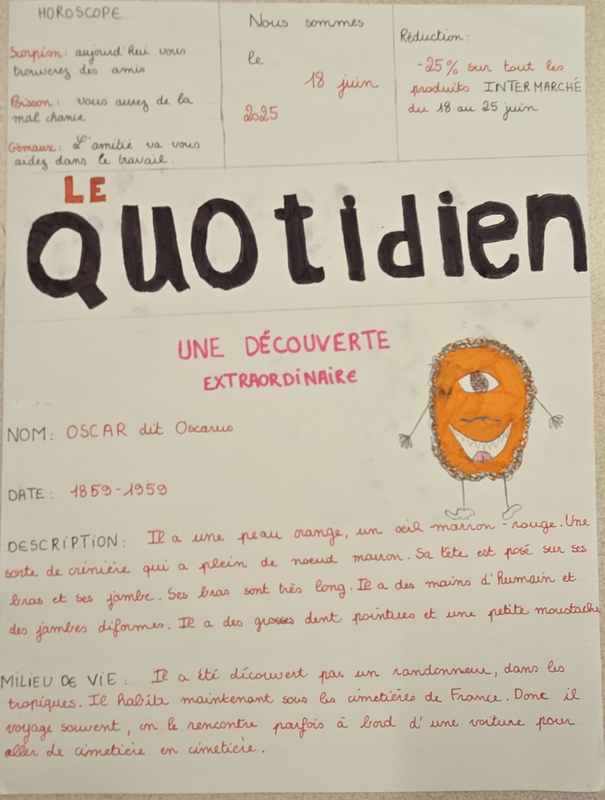 HOROSCOPE
Scorpion : aujourd'hui vous
trouverez des amis
Poisson : vous aurez de la
mal chance
Gémaux : L'amitié va vous
aidez dans le travail.
Nous sommes
le
18 juin
2025
Réduction :
-25% sur tout les
produits INTERMARCHÉ
du 18 au 25 juin
LE
QUOtidien
UNE DÉCOUVERTE
EXTRAORDINAIRE
NOM : OSCAR dit Oscarus
DATE : 1859-1959
DESCRIPTION : Il a une peau orange, un œil marron-rouge. Une
sorte de crinière qui a plein de noeud marron. Sa tête est posé sur ses
bras et ses jambe. Ses bras sont très long. Il a des mains d'humain et
des jambes diformes. Il a des grosses dent pointues et une petite moustache
MILIEU DE VIE : Il a été découvert par un randonneur, dans les
tropiques. Il habita maintenant sous les cimetières de France. Donc il
voyage souvent, on le rencontre parfois à bord d'une voiture pour
aller de cimetière en cimetière.